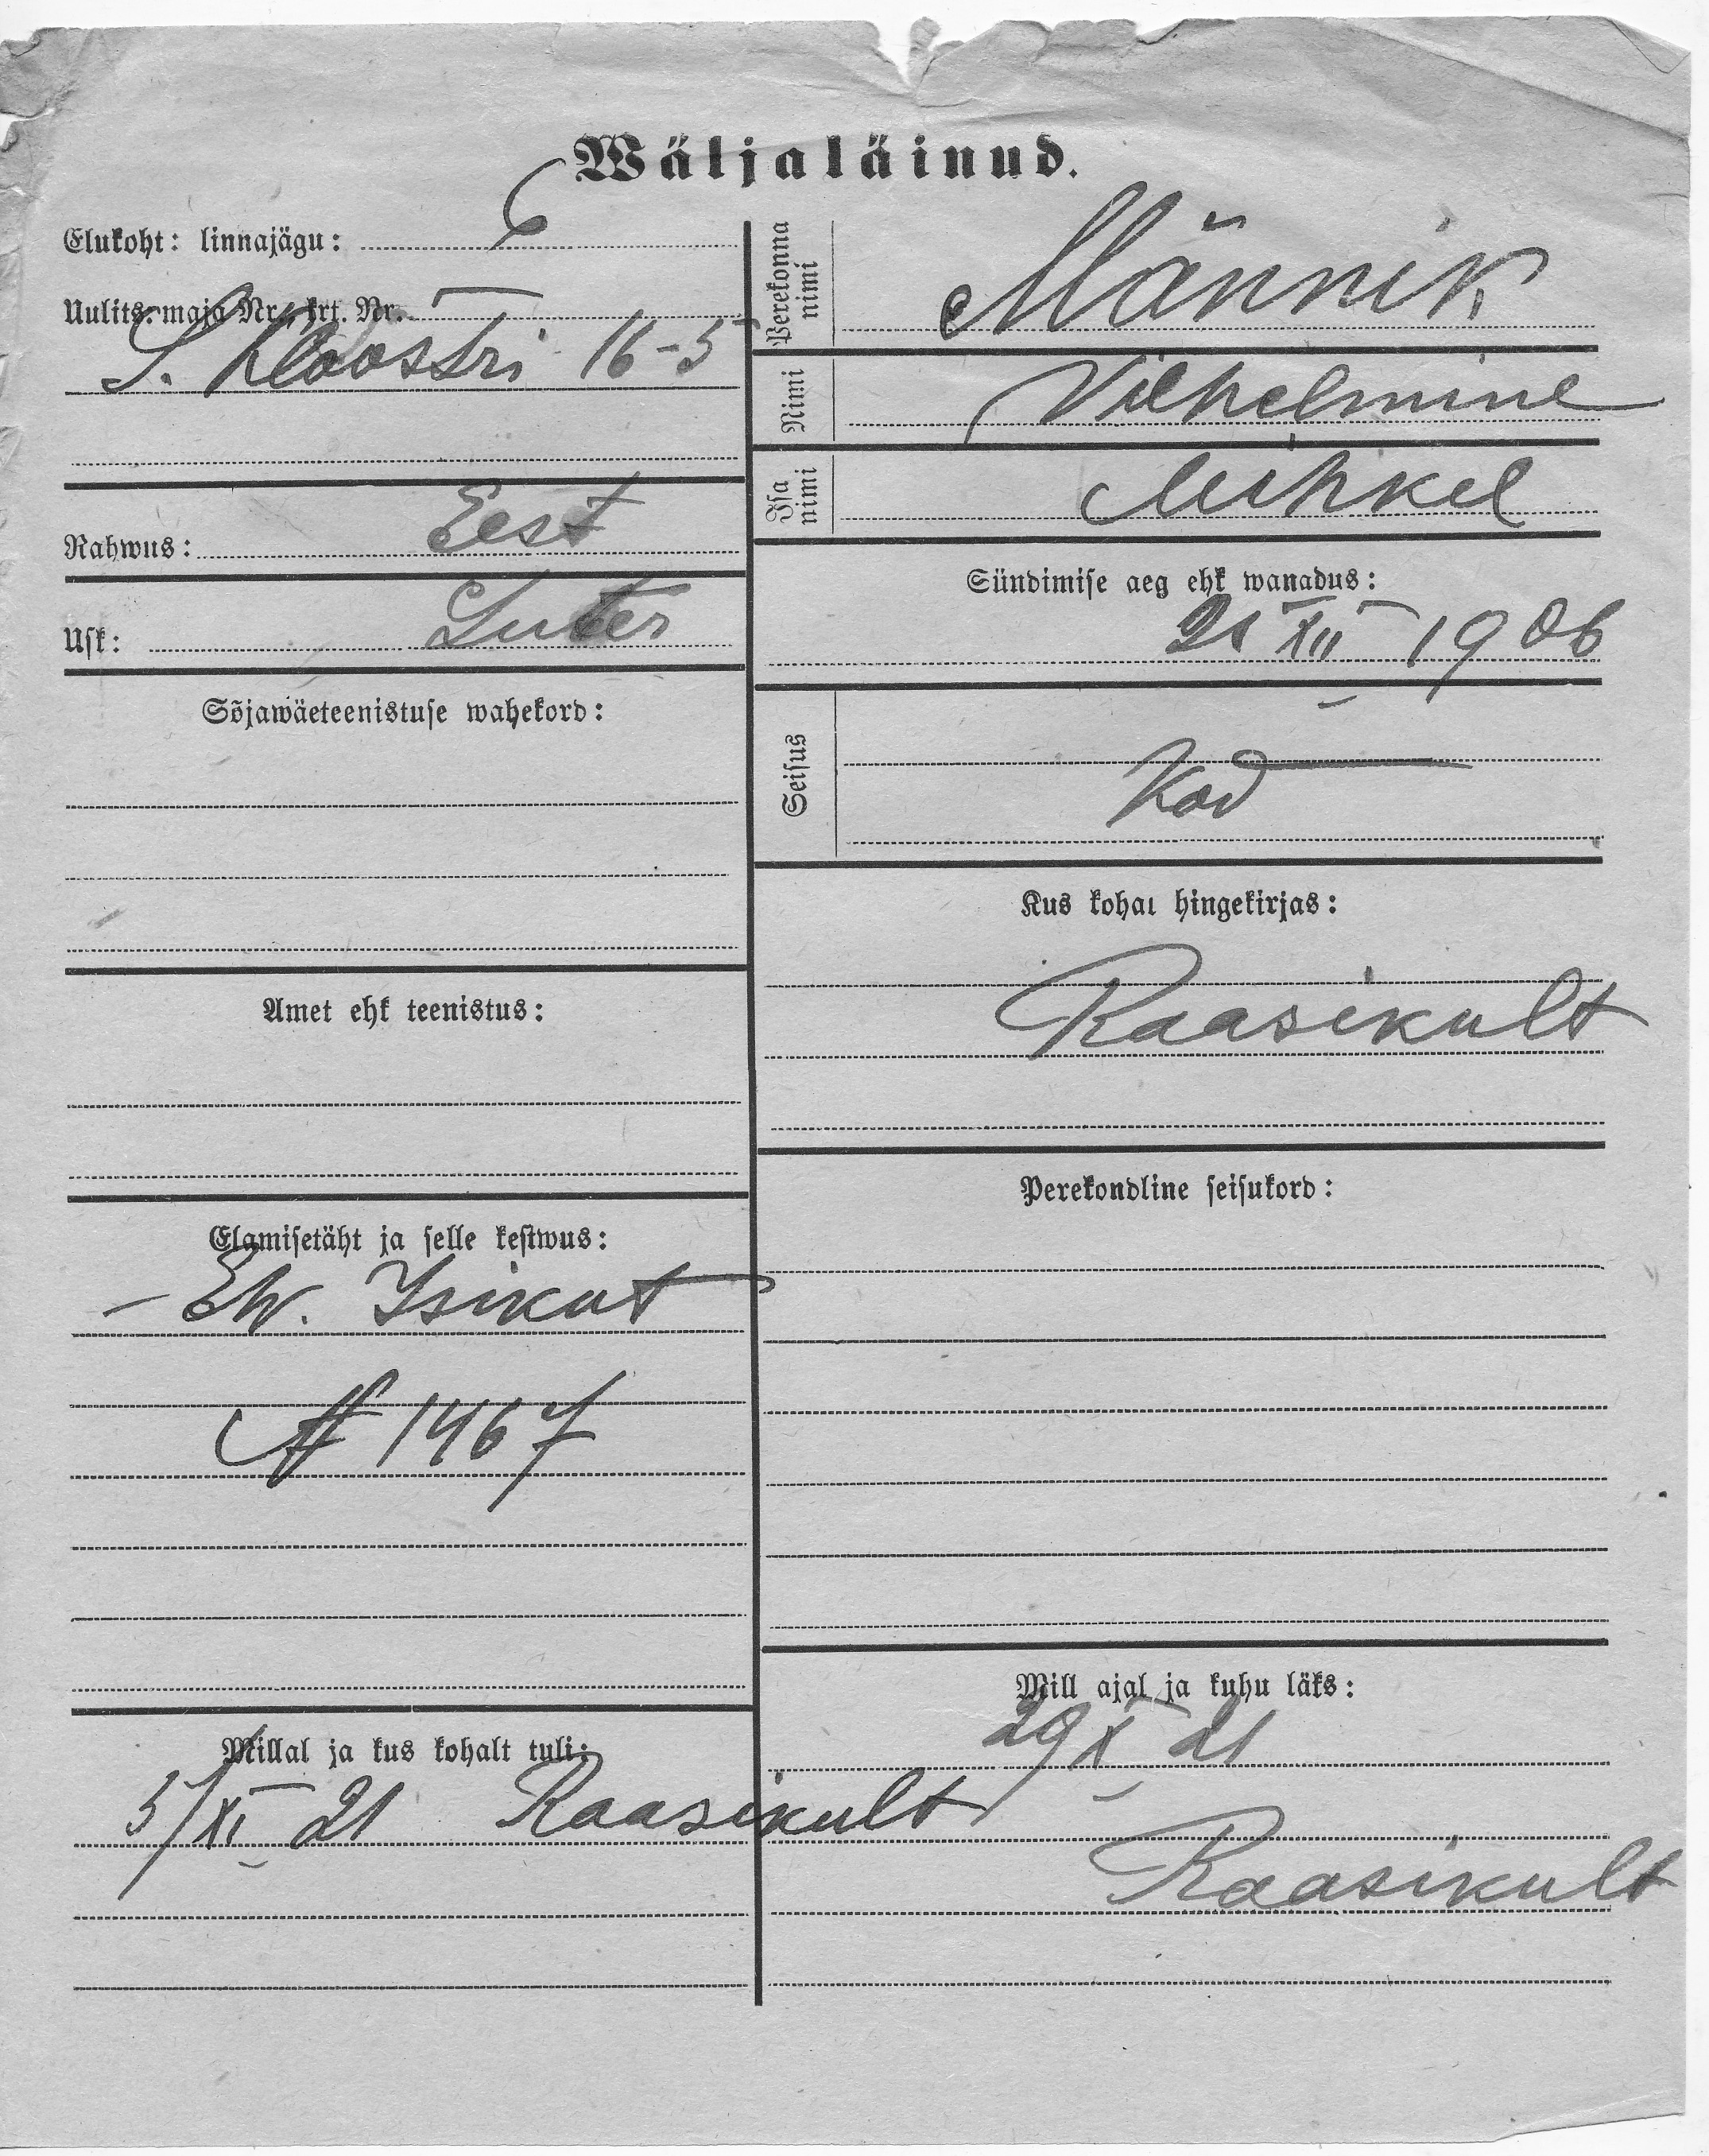 Wäljaläinud.
Elukoht: linnajägu: 6
Uulits: maja Nr., krt. Nr.
S. Kloostri 16-5
Rahwus: Eest
Usk: Luter
Sõjawäeteenistuse wahekord:
Amet ehk teenistus:
Elamisetäht ja selle kestwus:
- Ew. Isikut
№ 1467
Millal ja kus kohalt tuli:
5/XI 21 Raasikult
Perekonna nimi Männik
Nimi Vilhelmine
Isa nimi Mihkel
Sündimise aeg ehk wanadus:
21 XII 1906
Seisus
Kod
Kus kohal hingekirjas:
Raasikult
Perekondline seisukord:
Mill ajal ja kuhu läks:
29 X 21
Raasikult